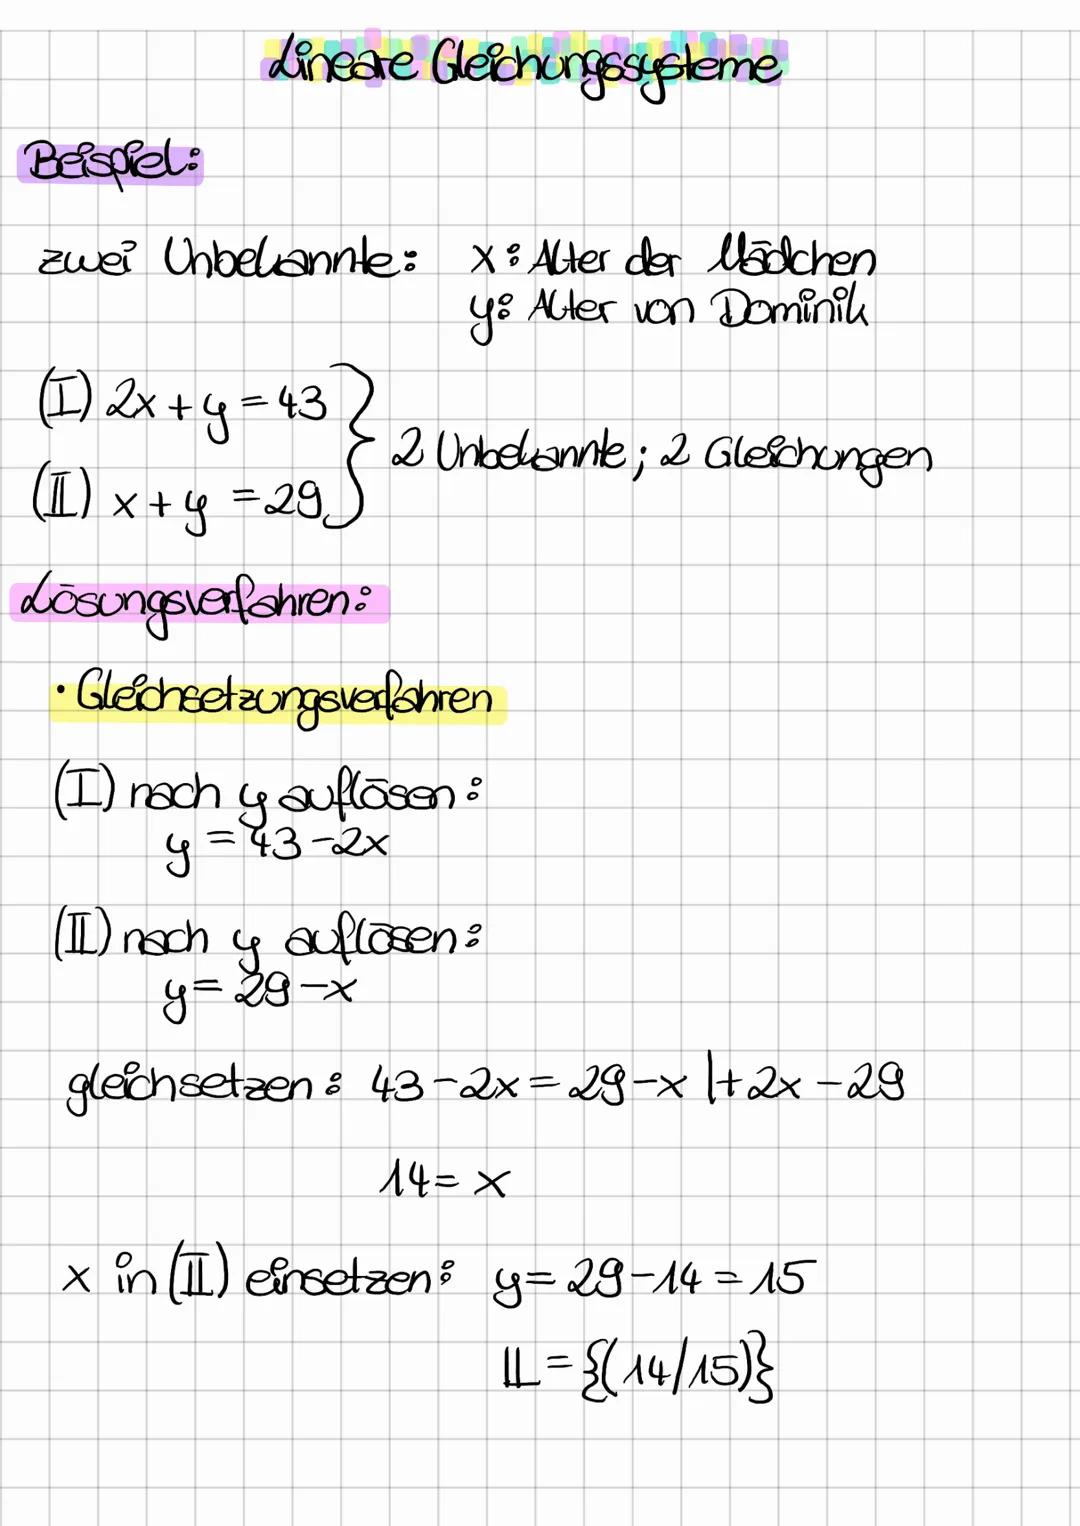 Lineare Gleichungssysteme
Beispiel:
zwei Unbekannte: x: Alter der Mädchen
y: Alter von Dominik
(I) 2x + y = 43
2 Unbekannte; 2 Gleichungen
(II) x + y = 29
Lösungsverfahren:
• Gleichsetzungsverfahren
(I) nach y auflösen:
y = 43 - 2x
(II) nach y auflösen:
y = 29 - x
gleichsetzen: 43 - 2x = 29 - x | + 2x - 29
14 = x
x in (II) einsetzen: y = 29 - 14 = 15
𝕃 = {(14/15)}